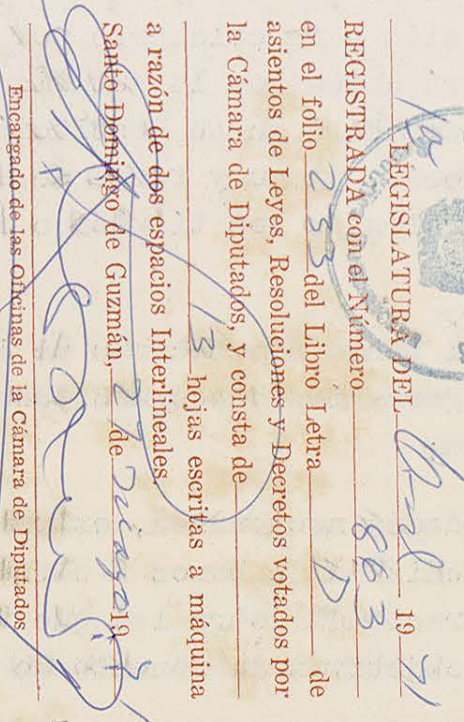 1a LEGISLATURA DEL Ord. 1971
REGISTRADA con el Número 863
en el folio 253 del Libro Letra D de
asientos de Leyes, Resoluciones y Decretos votados por
la Cámara de Diputados, y consta de
13 hojas escritas a máquina
a razón de dos espacios Interlineales.
Santo Domingo de Guzmán, 27 de Mayo 19
Encargado de las Oficinas de la Cámara de Diputados